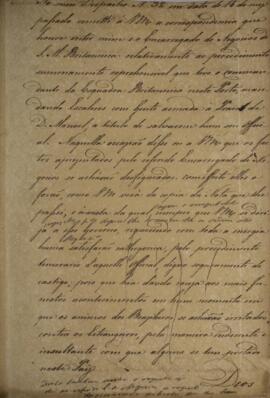 No meu Despacho Nº 32 em data de 16 do mez
passado remetti a V Mce a correspondencia que
houve entre mim e o Encarregado de Negocios de
S. M. Britannica relativamente ao procedimento
summamente reprehensivel que teve o comman-
dante da Esquadra Britannica neste Porto, man-
dando Escaleres com gente armada á Praia de
D. Manoel, a titulo de salvarem hum seu offi-
cial. Naquella occasião disse eu a V Mce que os fac-
tos apresentados pelo referido Encarregado de Ne-
gocios se achavão desfigurados: com effeito elles o
forão, como V Mce verá da copia da Nota que lhe
passei, e á vista da qual
já a esse Governo, requerendo com toda a energia
huma satisfação pelo procedimento
temerario d'aquelle official, digno seguramente de
castigo, pois que hia dando causa aos mais fu-
nestos acontecimentos em hum momento em
que os animos dos Brasileiros se achavão irritados
contra os Estrangeiros, pela maneira indecente e
insultante com que alguns se tem portado
neste Paiz.
Deos